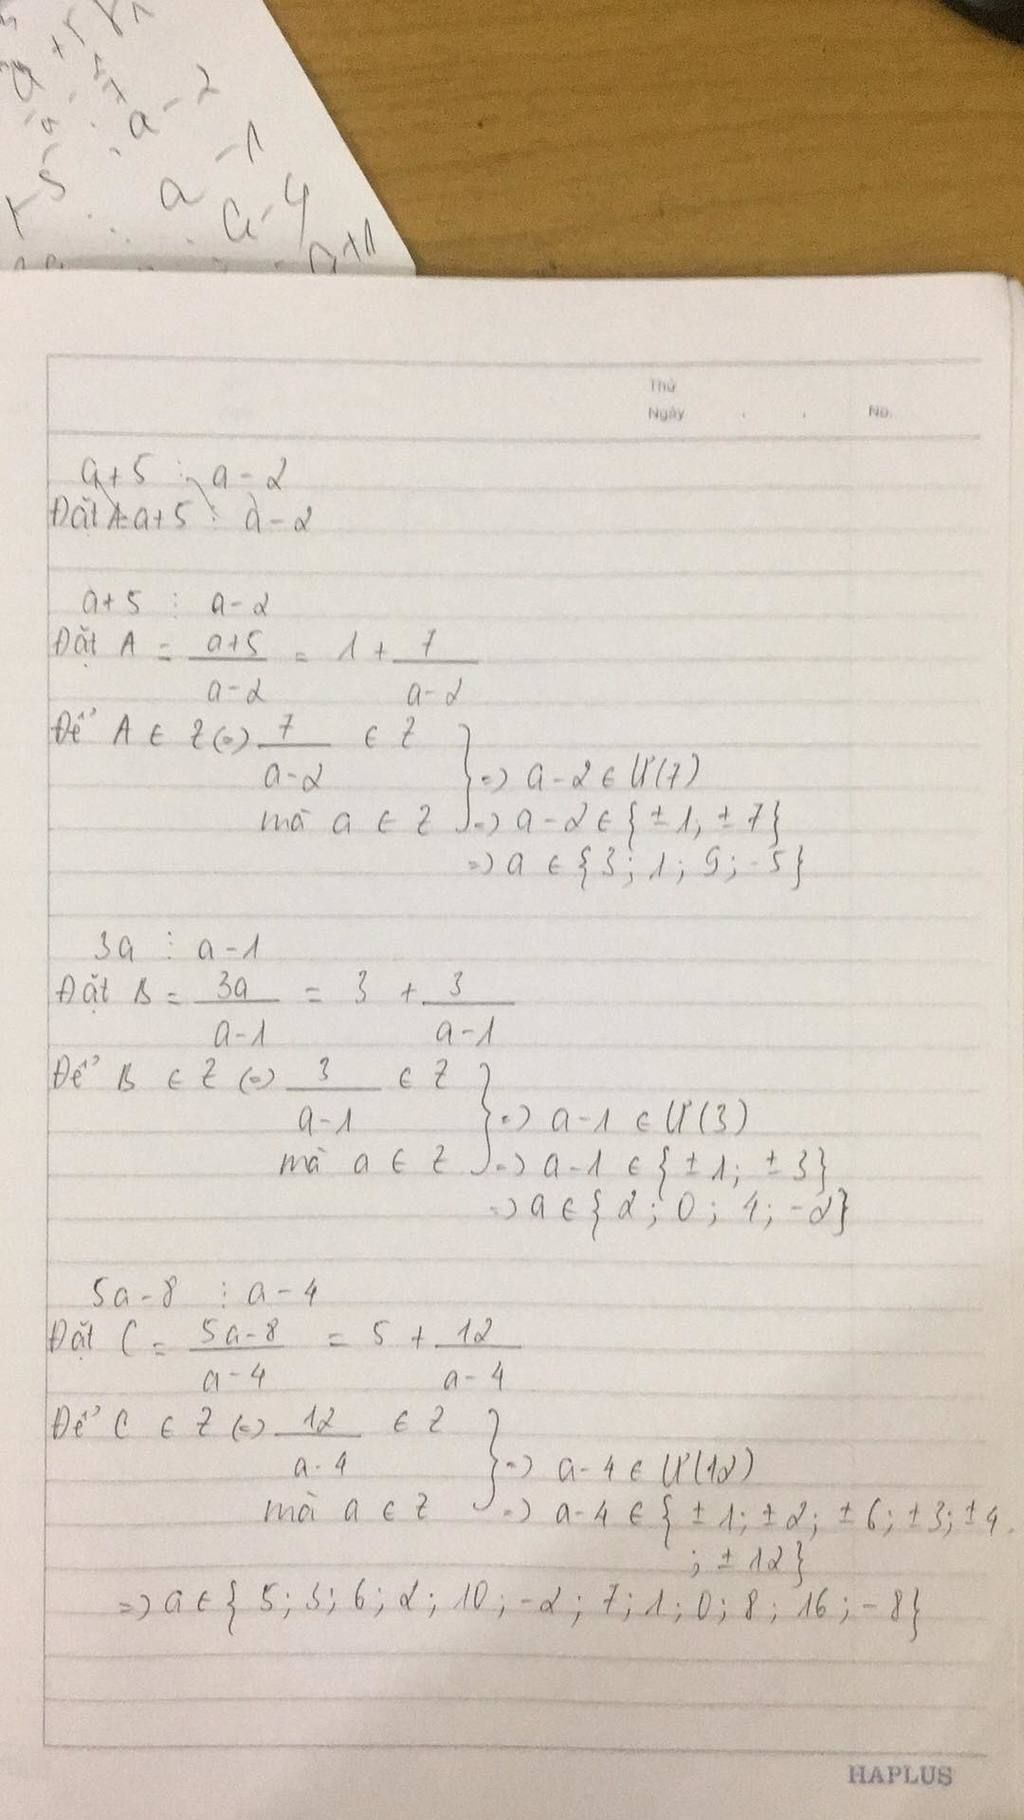 a - 2
a - 1
a - 4
Thứ
Ngày . . No.
a+5 ⋮ a-2
Đặt A= a+5 ⋮ a-2
a+5 ⋮ a-2
Đặt A = a+5/a-2 = 1 + 7/a-2
Để A ∈ Z (=) 7/a-2 ∈ Z
=) a-2 ∈ Ư(7)
mà a ∈ Z =) a-2 ∈ { ±1; ±7}
=) a ∈ {3; 1; 9; -5}
3a ⋮ a-1
Đặt B = 3a/a-1 = 3 + 3/a-1
Để B ∈ Z (=) 3/a-1 ∈ Z
=) a-1 ∈ Ư(3)
mà a ∈ Z =) a-1 ∈ { ±1; ±3}
=) a ∈ { 2; 0; 4; -2}
5a-8 ⋮ a-4
Đặt C = 5a-8/a-4 = 5 + 12/a-4
Để C ∈ Z (=) 12/a-4 ∈ Z
=) a-4 ∈ Ư(12)
mà a ∈ Z =) a-4 ∈ { ±1; ±2; ±6; ±3; ±4
; ±12}
=) a ∈ { 5; 3; 6; 2; 10; -2; 7; 1; 0; 8; 16; -8}
HAPLUS